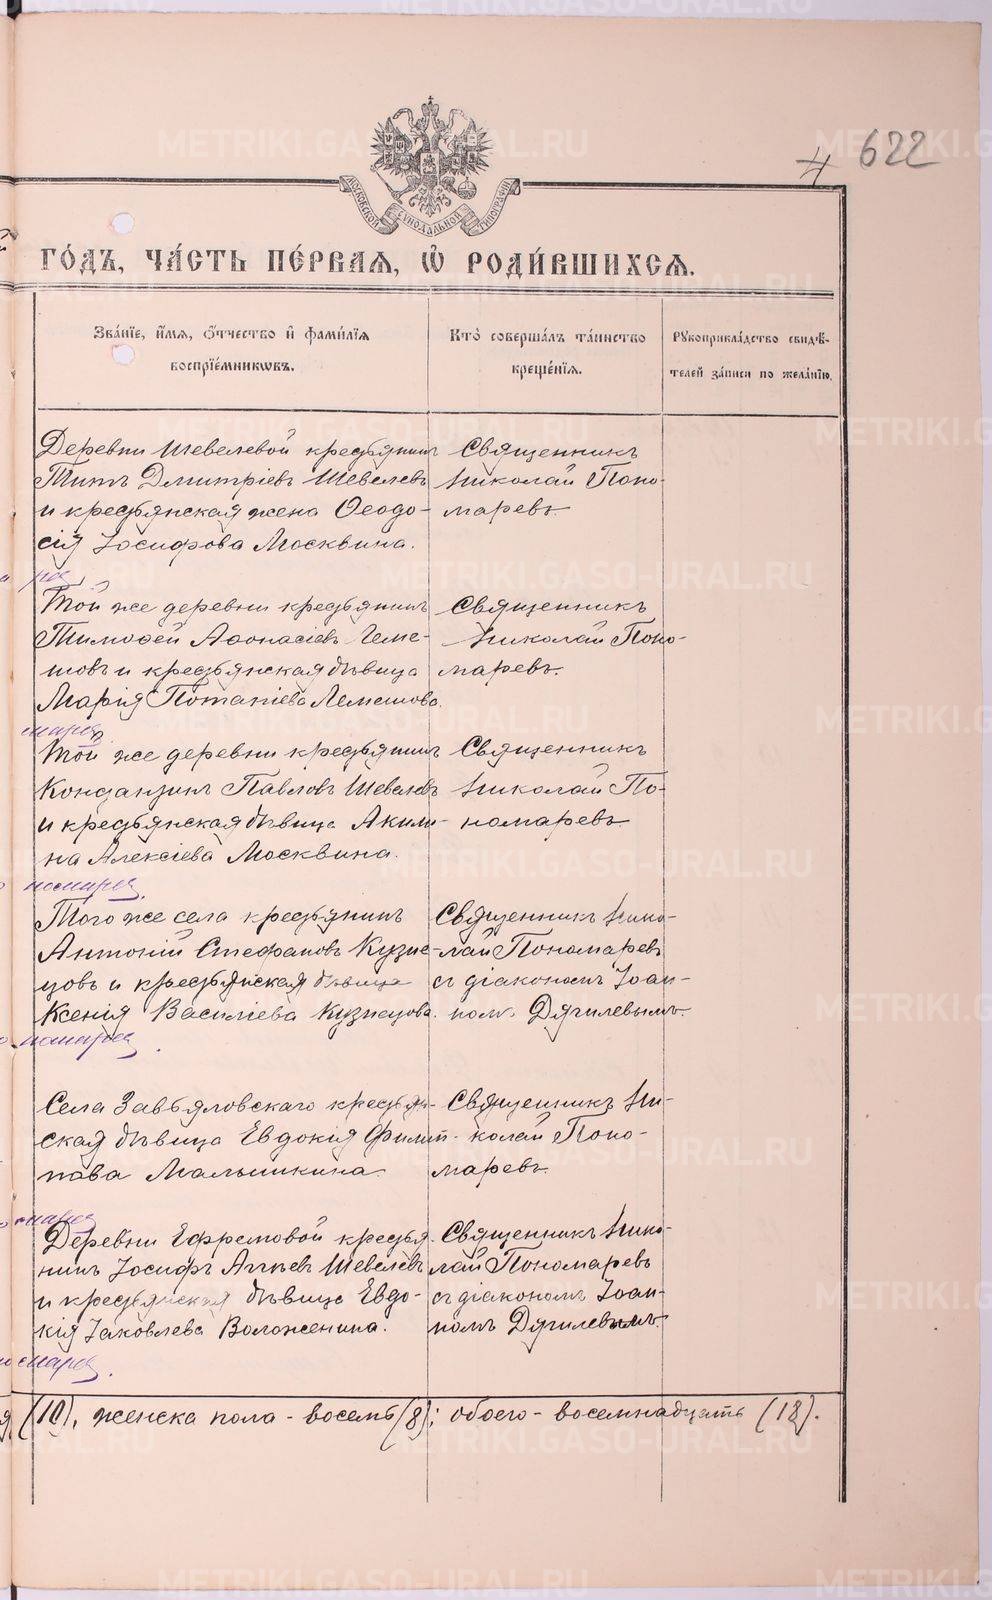 4 622
МОСКОВСКОЙ СИНОДАЛЬНОЙ ТИПОГРАФІИ
ГО́ДЪ, ЧА́СТЬ ПЕ́РВАѦ, Ѡ҆ РОДИ́ВШИХСѦ.
Зва́нїе, и҆́мѧ, о҆́тчество и҆ фами́лїѧ
воспрїе́мникѡвъ.
Кто̀ соверша́лъ та́инство
креще́нїѧ.
Рꙋкоприкла́дство свидѣ́-
телей за́писи по жела́нїю.
Деревни Шевелевой крестьянинъ
Титъ Дмитріевъ Шевелевъ
и крестьянская жена Ѳеодо-
сія Іосифова Москвина.
Священникъ
Николай Поно-
маревъ
Той же деревни крестьянинъ
Тимоѳей Аѳонасіевъ Леме-
шовъ и крестьянская дѣвица
Марія Потапіева Лемешова.
Священникъ
Николай Поно-
маревъ.
Той же деревни крестьянинъ
Констанзинъ Павловъ Шевелевъ
и крестьянская дѣвица Акили-
на Алексіева Москвина.
Священникъ
Николай По-
номаревъ
Того же села крестьянинъ
Антоній Стефановъ Кузне-
цовъ и крестьянская дѣвица
Ксенія Василіева Кузнецова.
Священникъ Нико-
лай Пономаревъ
съ діакономъ Іоан-
номъ Дягилевымъ
Села Завьяловскаго крестьян-
ская дѣвица Евдокія Филип-
пова Малышкина
Священникъ Ни-
колай Поно-
маревъ
Деревни Ефремовой крестья-
нинъ Іосифъ Агѣевъ Шевелевъ
и крестьянская дѣвица Евдо-
кія Іаковлева Воложенина.
Священникъ Нико-
лай Пономаревъ
съ діакономъ Іоан-
номъ Дягилевымъ.
(10), женска пола - восемь (8); обоего - восемнадцать (18).
METRIKI.GASO-URAL.RU